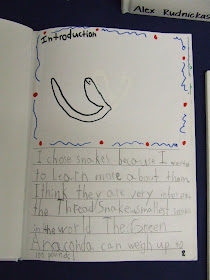 Alex Rudnickas
Introduction
I chose snakes because I wanted
to learn more about them.
I think they are very
the Thread Snake smallest
in the world The Green
Anaconda can weigh up to
100 pounds!
8